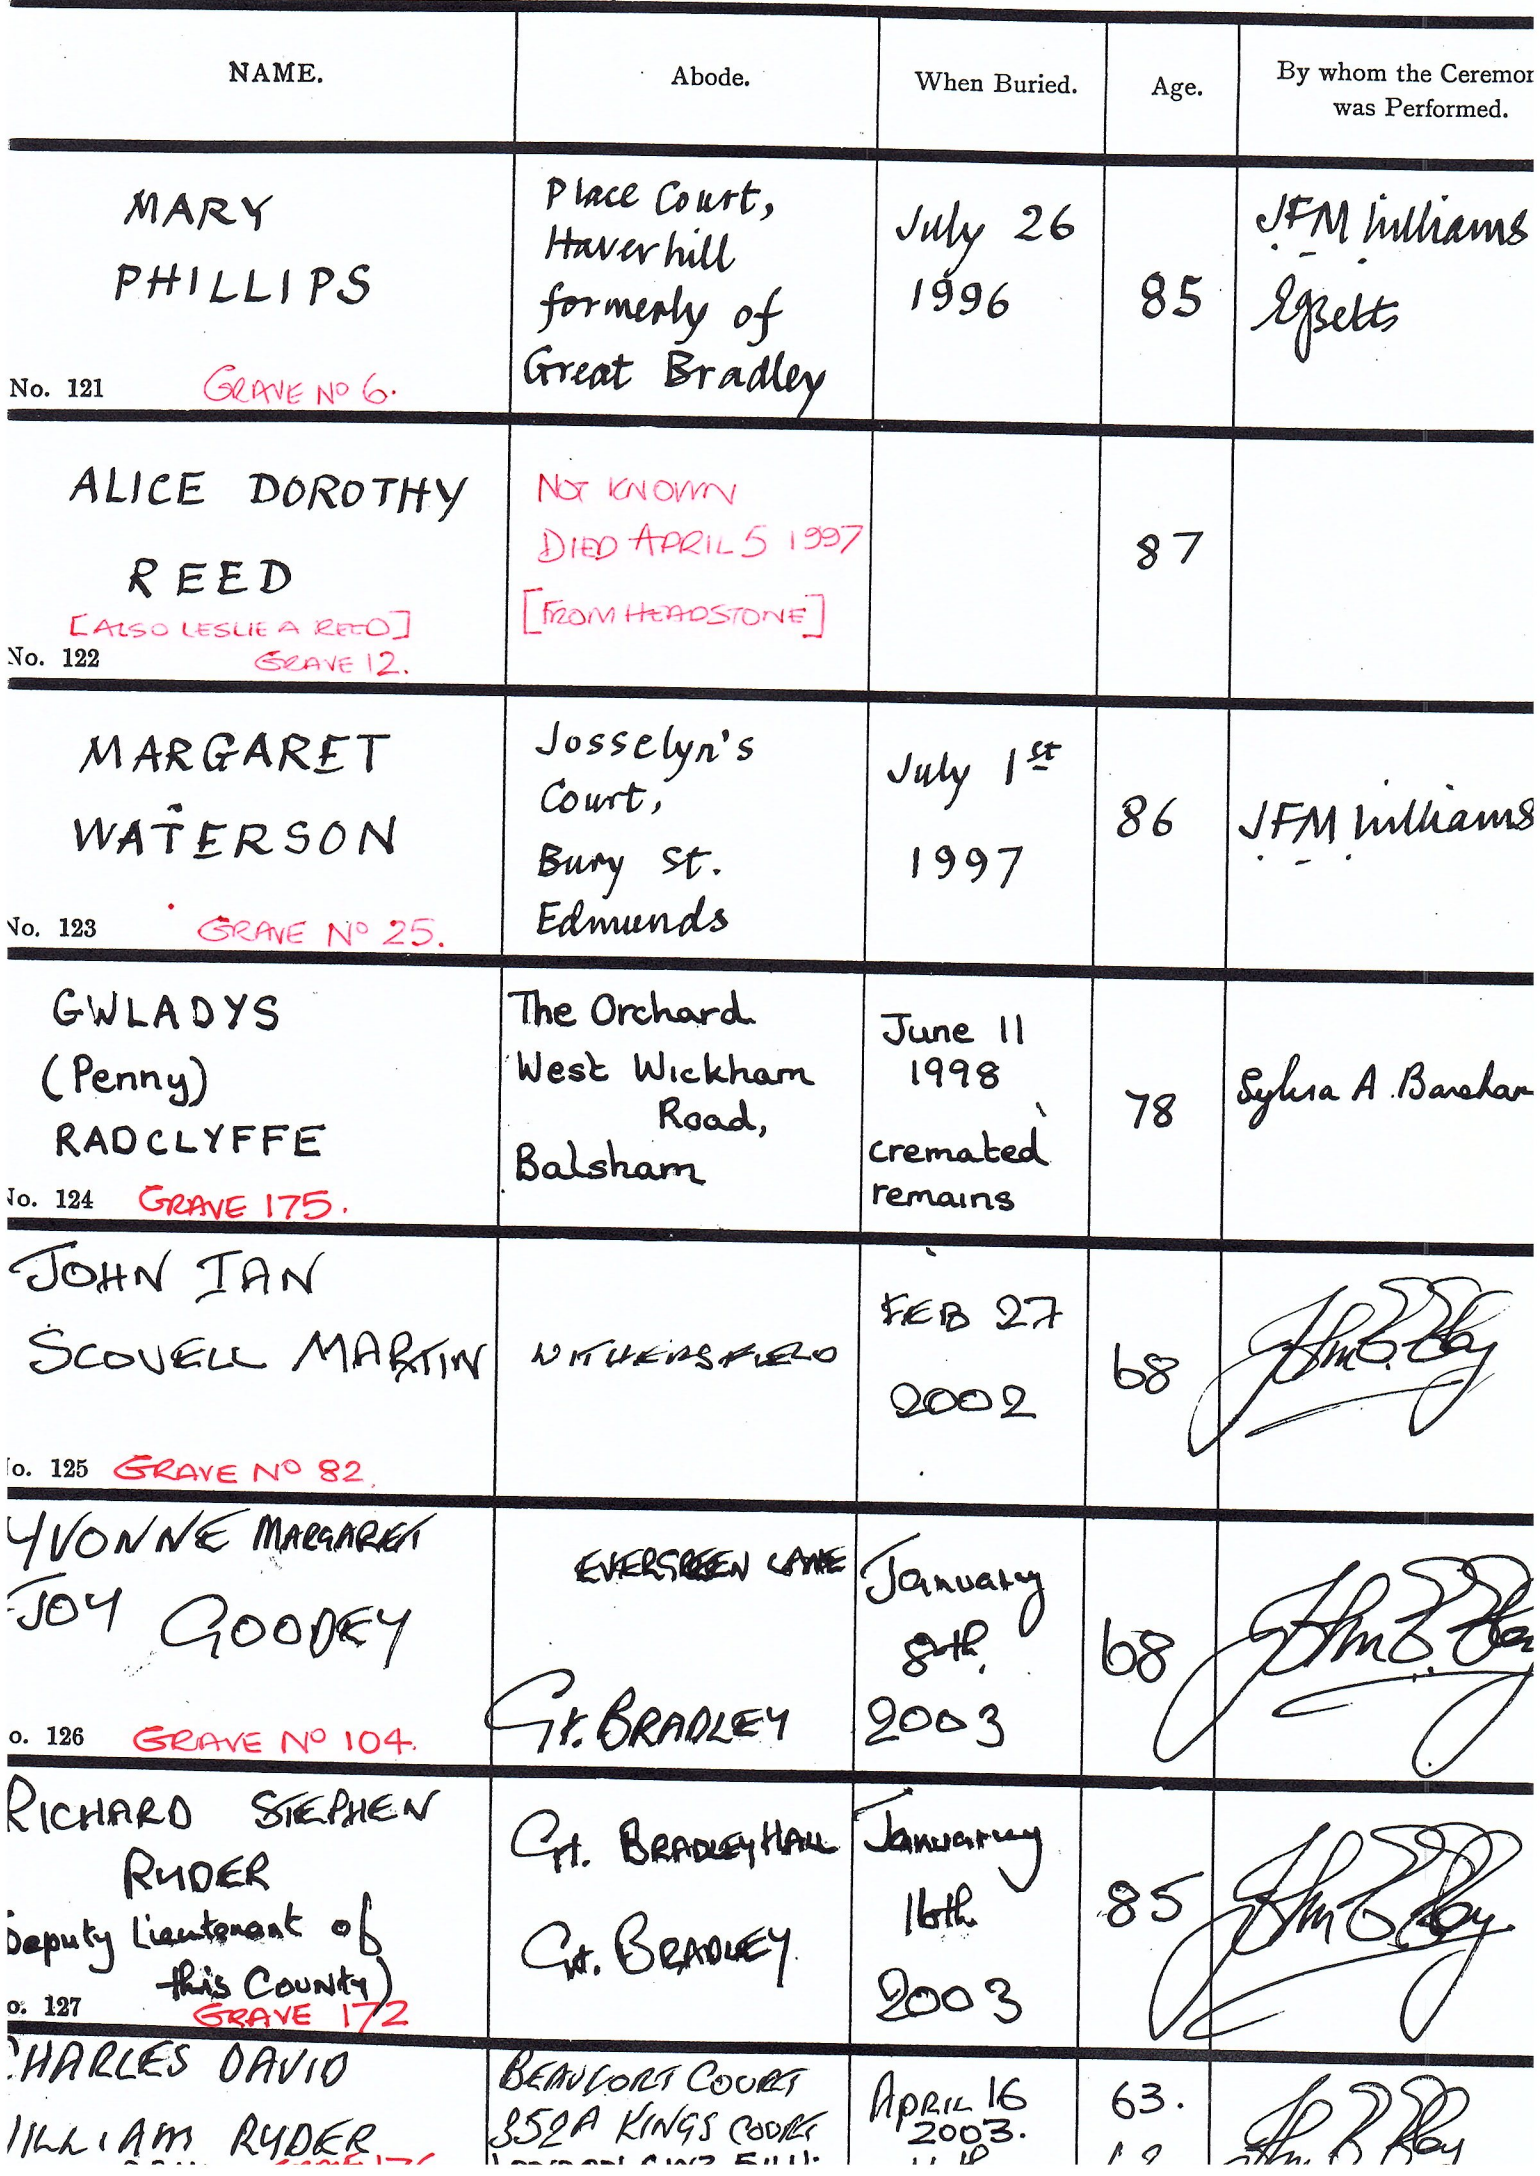 NAME.
Abode.
When Buried.
Age.
By whom the Ceremon
was Performed.
MARY
PHILLIPS
No. 121
GRAVE No 6.
Place Court,
Haverhill
formerly of
Great Bradley
July 26
1996
85
JFM Williams
EGBetts
ALICE DOROTHY
REED
[ALSO LESLIE A REED]
No. 122
GRAVE 12.
NOT KNOWN
DIED APRIL 5 1997
[FROM HEADSTONE]
87
MARGARET
WATERSON
No. 123
GRAVE No 25.
Josselyn's
Court,
Bury St.
Edmunds
July 1st
1997
86
JFM Williams
GWLADYS
(Penny)
RADCLYFFE
No. 124
GRAVE 175.
The Orchard
West Wickham
Road,
Balsham
June 11
1998
cremated
remains
78
Sylvia A.
JOHN IAN
SCOVELL MARTIN
o. 125
GRAVE No 82.
WITHERSFIELD
FEB 27
2002
68
YVONNE MARGARET
JOY GOODEY
o. 126
GRAVE No 104.
EVERGREEN LANE
Gt. BRADLEY
January
8th.
2003
68
RICHARD STEPHEN
RYDER
Deputy Lieutenant of
this COUNTY)
o. 127
GRAVE 172
Gt. BRADLEY HALL
Gt. BRADLEY
January
16th
2003
85
CHARLES DAVID
WILLIAM RYDER
BEAUFORT COURT
352A KINGS COURT
APRIL 16
2003.
63.